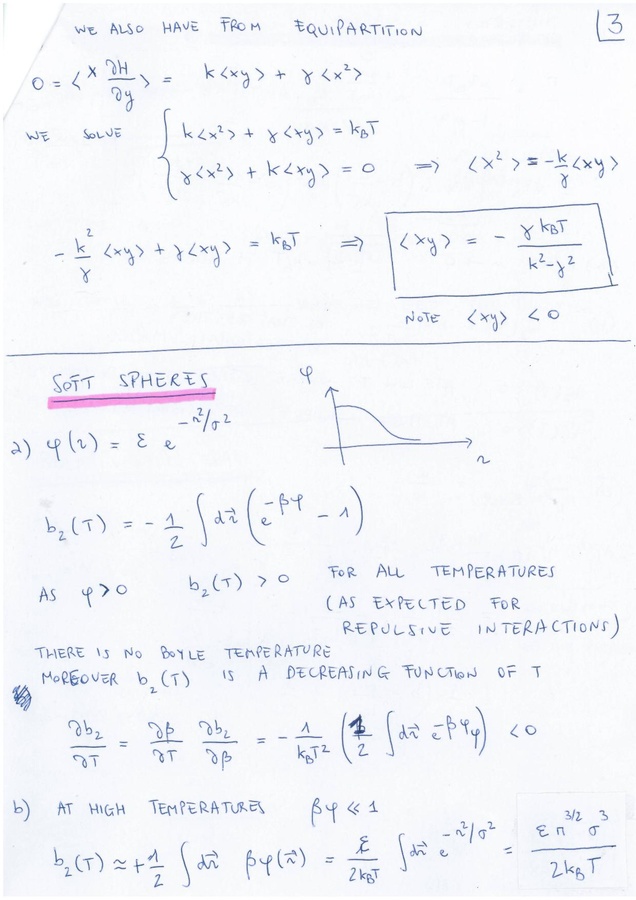 WE ALSO HAVE FROM EQUIPARTITION
3
0 = <x ∂H/∂y> = k<xy> + γ<x²>
WE SOLVE { k<x²> + γ<xy> = k_BT
γ<x²> + k<xy> = 0 ⟹ <x²> = -k/γ <xy>
-k²/γ <xy> + γ<xy> = k_BT ⟹ <xy> = - γ k_BT / k²-γ²
NOTE <xy> < 0
SOFT SPHERES
φ
r
a) φ(r) = ε e^{-r²/σ²}
b₂(T) = - 1/2 ∫ dr⃗ ( e^{-βφ} - 1 )
AS φ>0 b₂(T) > 0 FOR ALL TEMPERATURES
(AS EXPECTED FOR
REPULSIVE INTERACTIONS)
THERE IS NO BOYLE TEMPERATURE
MOREOVER b₂(T) IS A DECREASING FUNCTION OF T
∂b₂/∂T = ∂β/∂T ∂b₂/∂β = - 1/k_BT² ( 1/2 ∫ dr⃗ e^{-βφ} φ ) < 0
b) AT HIGH TEMPERATURES βφ ≪ 1
b₂(T) ≈ + 1/2 ∫ dr⃗ βφ(r⃗) = ε/2k_BT ∫ dr⃗ e^{-r²/σ²} = ε π^{3/2} σ³ / 2k_BT